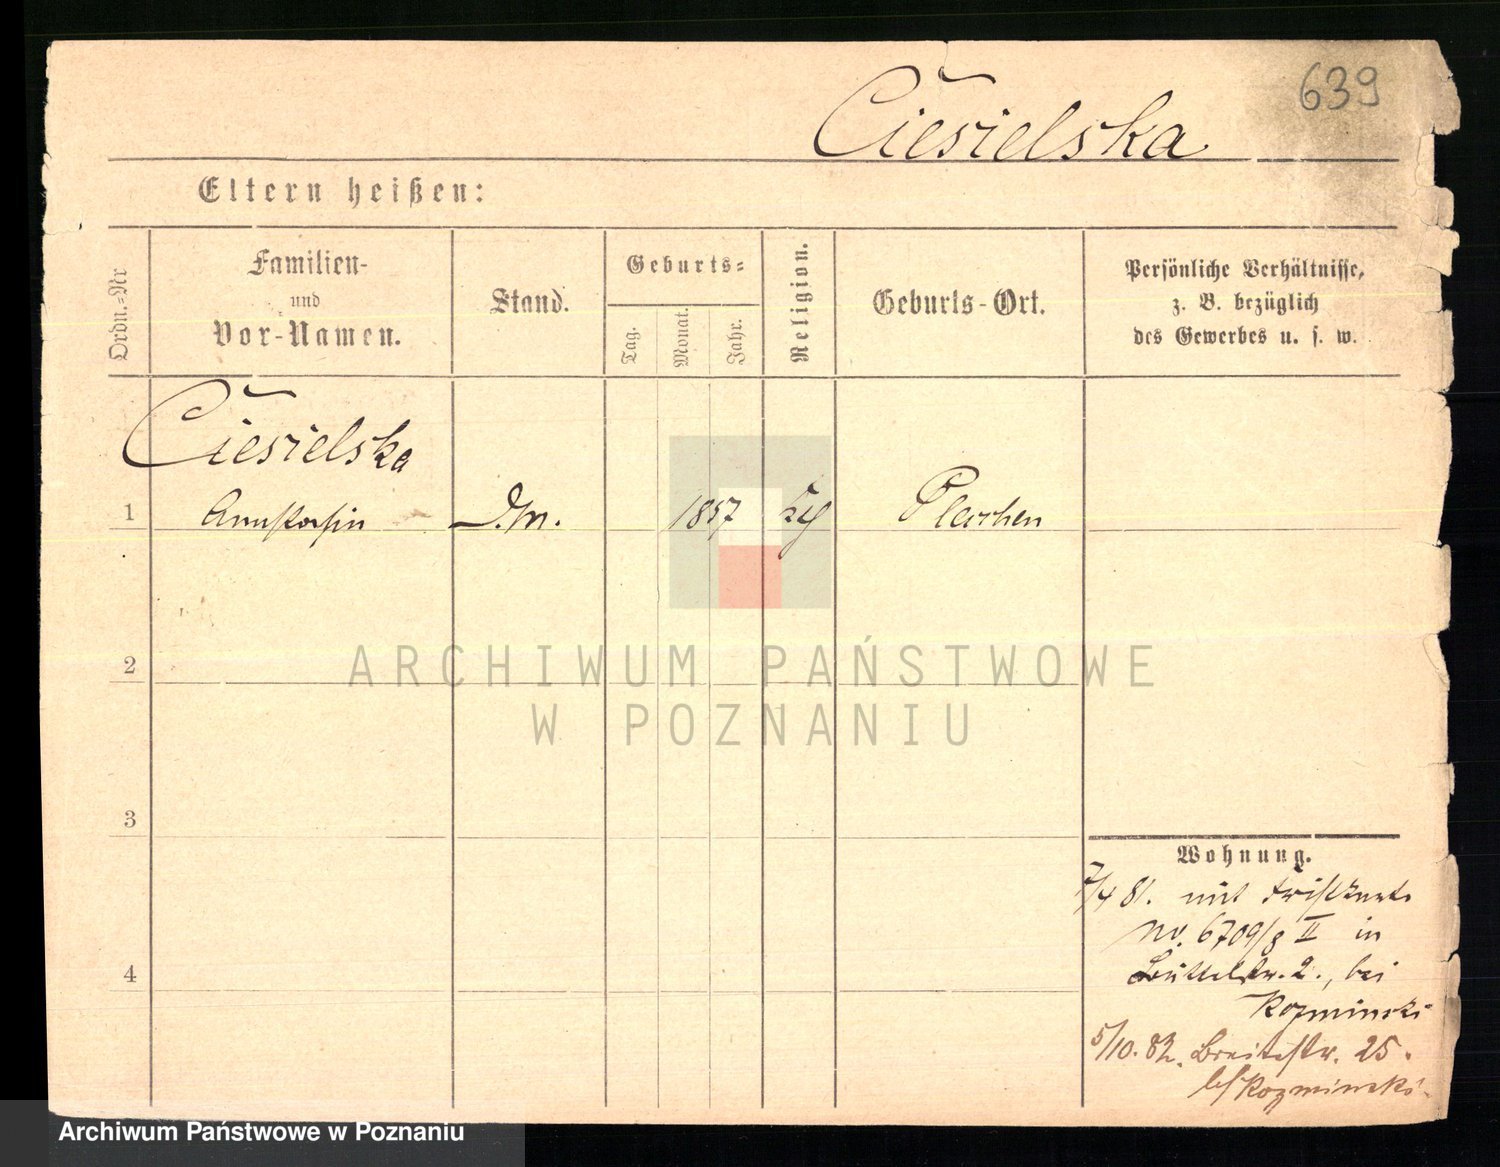 639
Ciesielska
Eltern heißen:
Ordn.-Nr
Familien-
und
Vor-Namen.
Stand.
Geburts-
Tag.
Monat.
Jahr.
Religion.
Geburts-Ort.
Persönliche Verhältnisse,
z. B. bezüglich
des Gewerbes u. s. w.
Ciesielska
1
D. M.
1857
Pleschen
2
ARCHIWUM PAŃSTWOWE
W POZNANIU
3
4
Wohnung.
7/4 81. mit Fristkarte
No. 6709/8 II in
Büttelstr. 2., bei
Kozminski
5/10. 82. Breitestr. 25.
bei Kozminski.
Archiwum Państwowe w Poznaniu